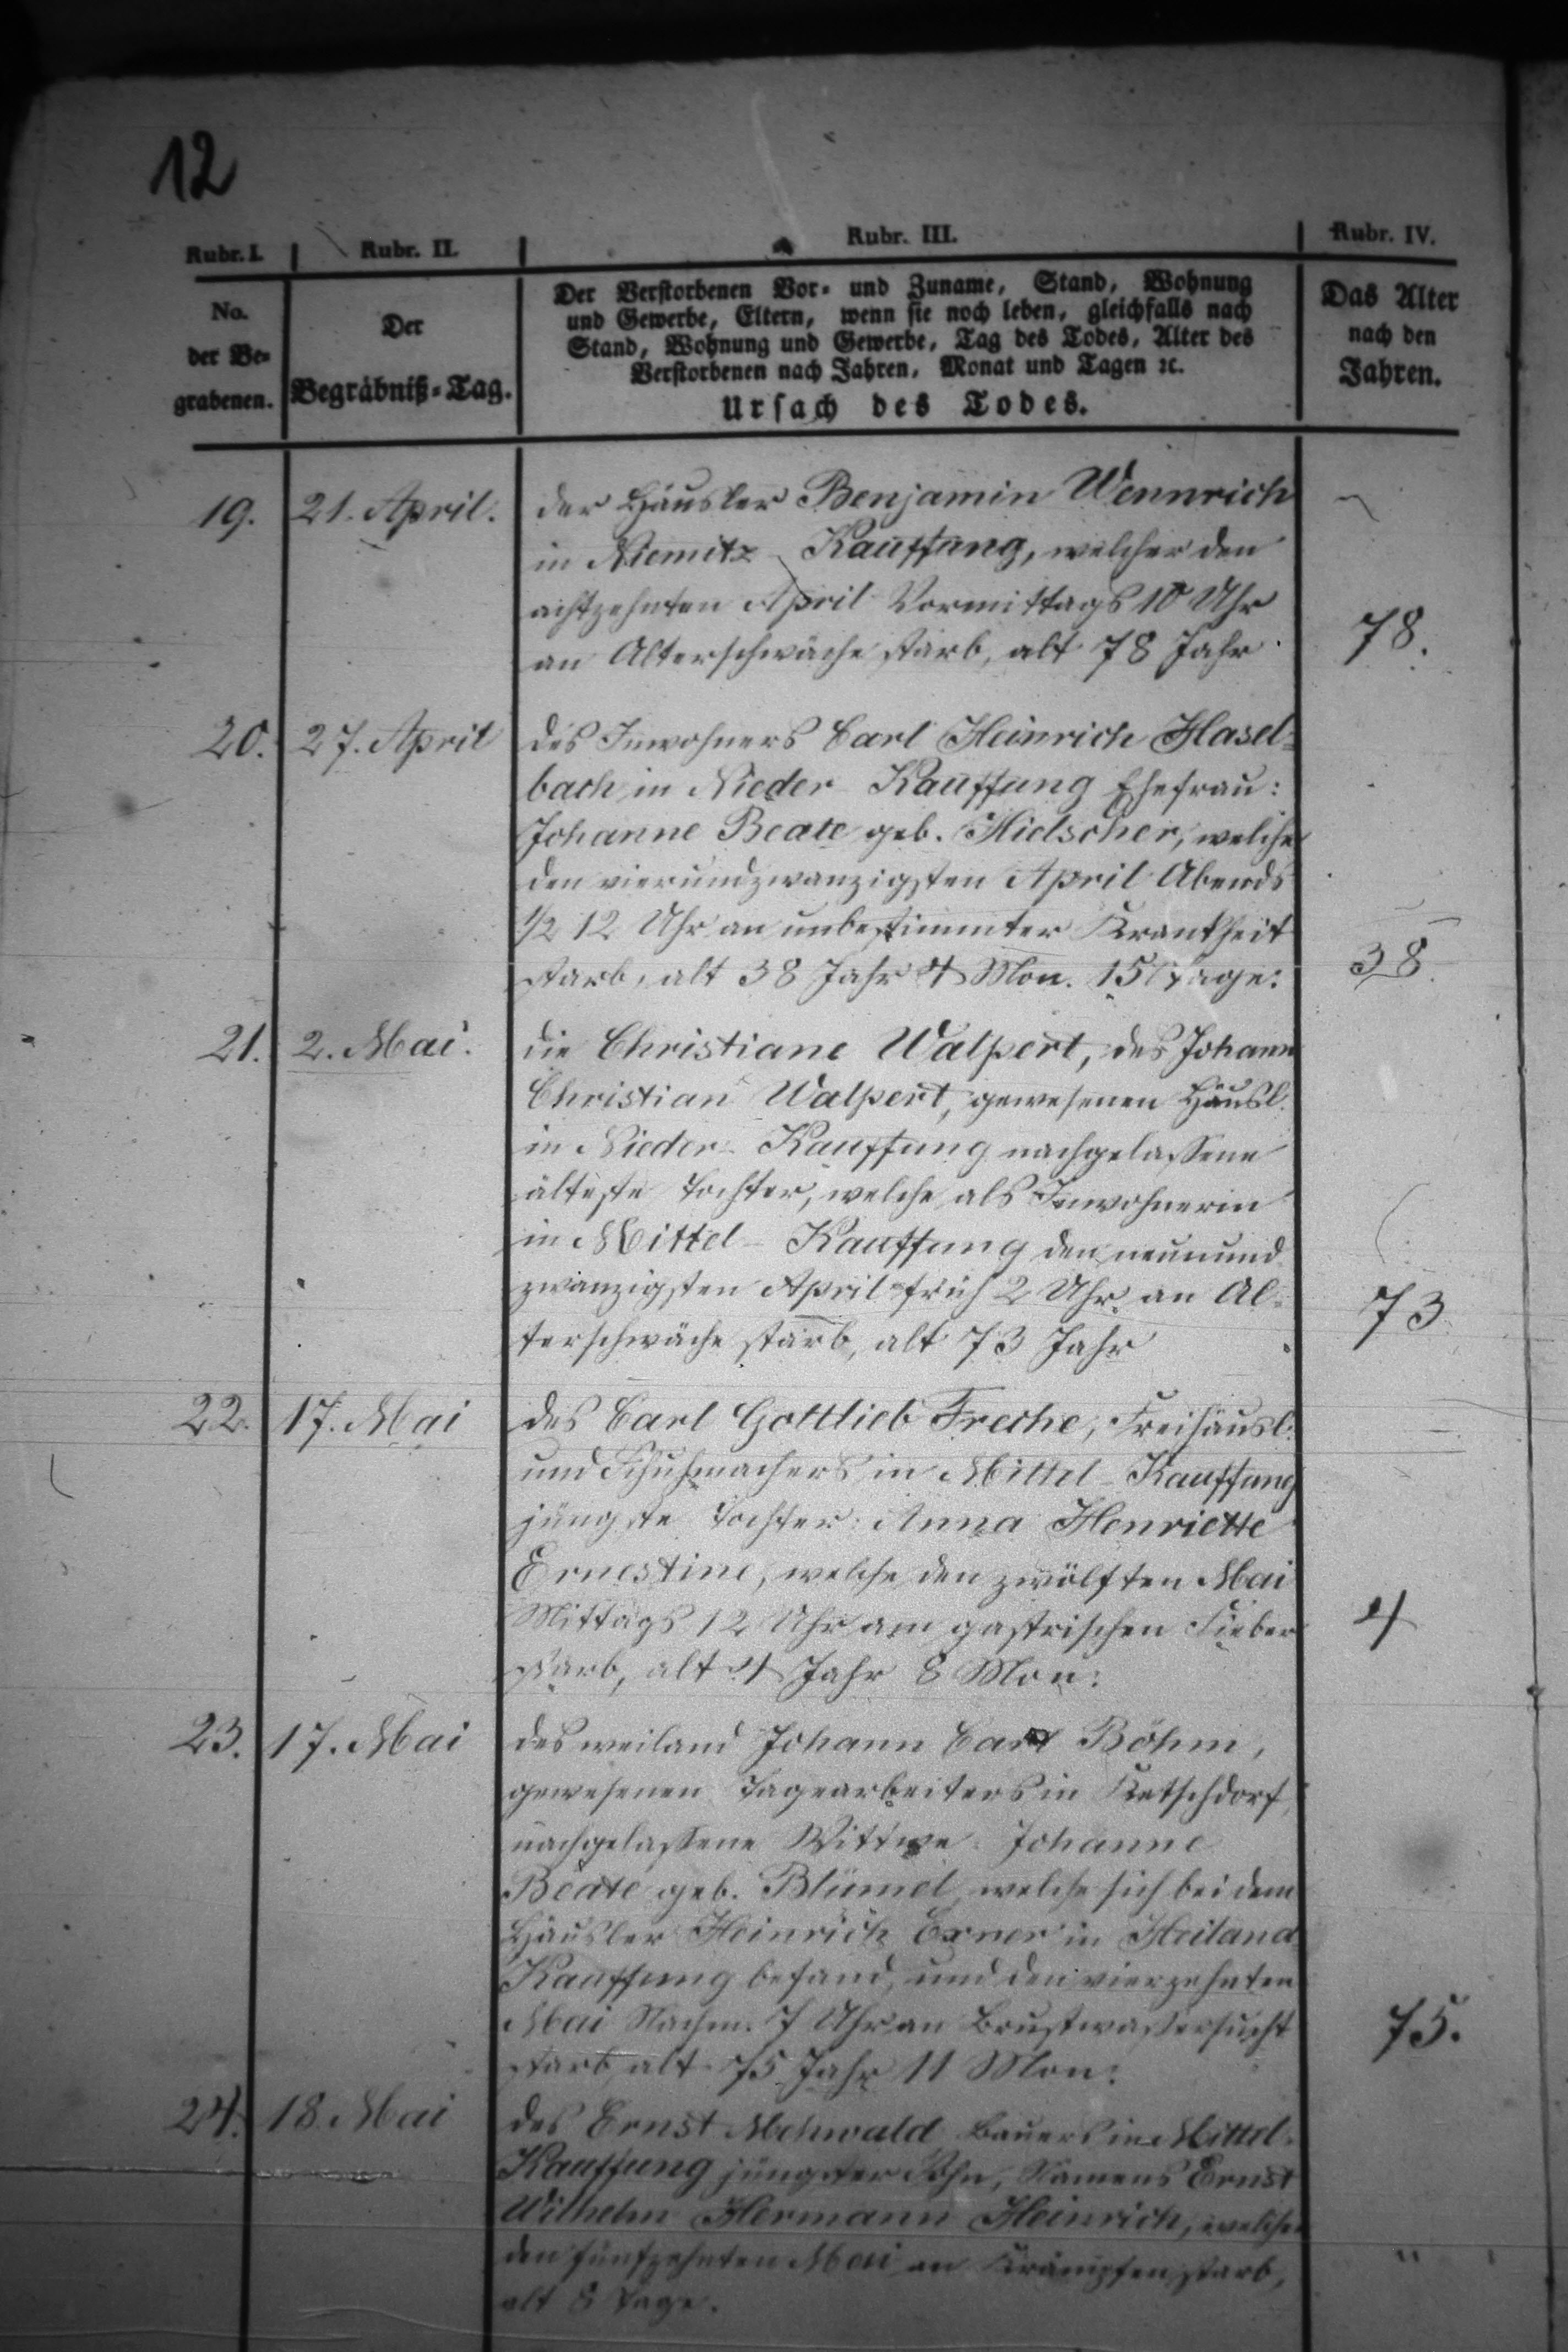 12
Rubr. I. Rubr. II. Rubr. III. Rubr. IV.
No. der Be-grabenen.
Der Begräbniß-Tag.
Der Verstorbenen Vor- und Zuname, Stand, Wohnung
und Gewerbe, Eltern, wenn sie noch leben, gleichfalls nach
Stand, Wohnung und Gewerbe, Tag des Todes, Alter des
Verstorbenen nach Jahren, Monat und Tagen ꝛc.
Ursach des Todes.
Das Alter
nach den
Jahren.
19. 21. April. der Häusler Benjamin Wennrich
in Niemitz-Kauffung, welcher den
achtzehnten April Vormittags 10 Uhr
an Alterschwäche starb, alt 78 Jahr. 78.
20. 27. April des Inwohners Carl Heinrich Hasel=
bach in Nieder-Kauffung Ehefrau:
Johanne Beate geb. Hielscher, welche
den vierundzwanzigsten April Abends
1/2 12 Uhr an unbestimmter Krankheit
starb, alt 38 Jahr 4 Mon. 15 Tage: 38.
21. 2. Mai. die Christiane Walpert, des Johann
Christian Walpert, gewesenen Häusl.
in Nieder-Kauffung nachgelaßene
älteste Tochter, welche als Inwohnerin
in Mittel-Kauffung den neunund
zwanzigsten April früh 2 Uhr an Al=
terschwäche starb, alt 73 Jahr 73
22. 17. Mai des Carl Gottlieb Freche, Freihäusl.
und Schuhmachers in Mittel-Kauffung
jüngste Tochter: Anna Henriette
Ernestine, welche den zwölften Mai
Mittags 12 Uhr am gastrischen Fieber
starb, alt 4 Jahr 8 Mon: 4
23. 17. Mai des weiland Johann Carl Böhm,
gewesenen Tagearbeiters in Ketschdorf,
nachgelaßene Wittwe Johanne
Beate geb. Blümel, welche sich bei dem
Häusler Heinrich Exner in Heiland
Kauffung befand, und den vierzehnten
Mai Nachm. 7 Uhr an Brustwaßersucht
starb, alt 75 Jahr 11 Mon: 75.
24. 18. Mai des Ernst Mehwald Bauers in Mittel-
Kauffung jüngster Sohn, Namens Ernst
Wilhelm Hermann Heinrich, welcher
den fünfzehnten Mai an Krämpfen starb, "
alt 8 Tage.